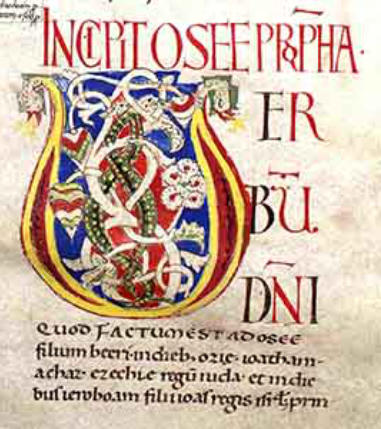 INCIPIT OSEE PROPHA·
VER
BŪ.
DN̄I
QUOD FACTUM EST AD OSEE
filium beeri· in dieb; ozie· ioatham·
achaz· ezechie regū iuda· et in die
bus ieroboam filii ioas regis isrł; prin